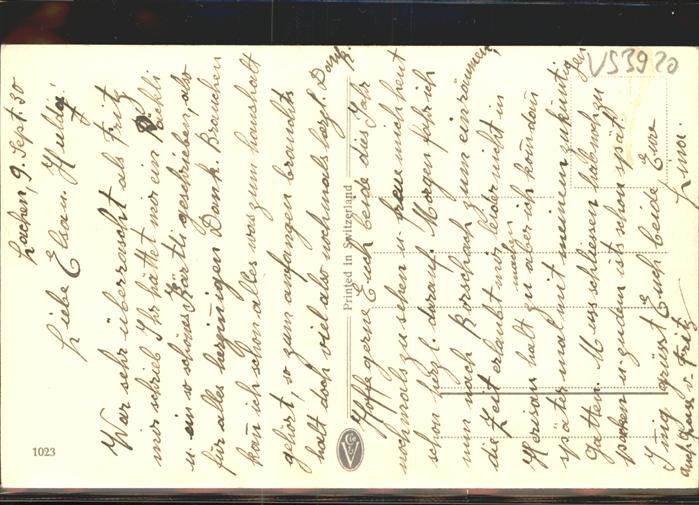 Lachen, 9. Sept. 50
Liebe Elsa u. Hedy!
War sehr überrascht als Fritz
mir schrieb Ihr hättet mir ein Päckli
u ein so schönes Kärtli geschrieben, also
für alles herzinnigen Dank. Brauchen
kann ich schon alles was zum haushalt
gehört, so zum anfangen brauchts
halt doch viel also nochmals bezl. Dank.
Hoffe gerne Euch beide dies Jahr
nochmals zu sehen u. freue mich heut
schon herzl. darauf. Morgen fahr ich
nun nach Rorschach zum einräumen,
die Zeit erlaubt mir leider nicht in
Herisau halt zu machen aber ich komm dann
später mal mit meinem zukünftigen
Gatten. Muss schliessen hab noch zu
packen u zudem ists schon spät.
Innig grüsst Euch beide Eure
auch Gruss v. Fritz. Luna.
Printed in Switzerland
1023
VS3920